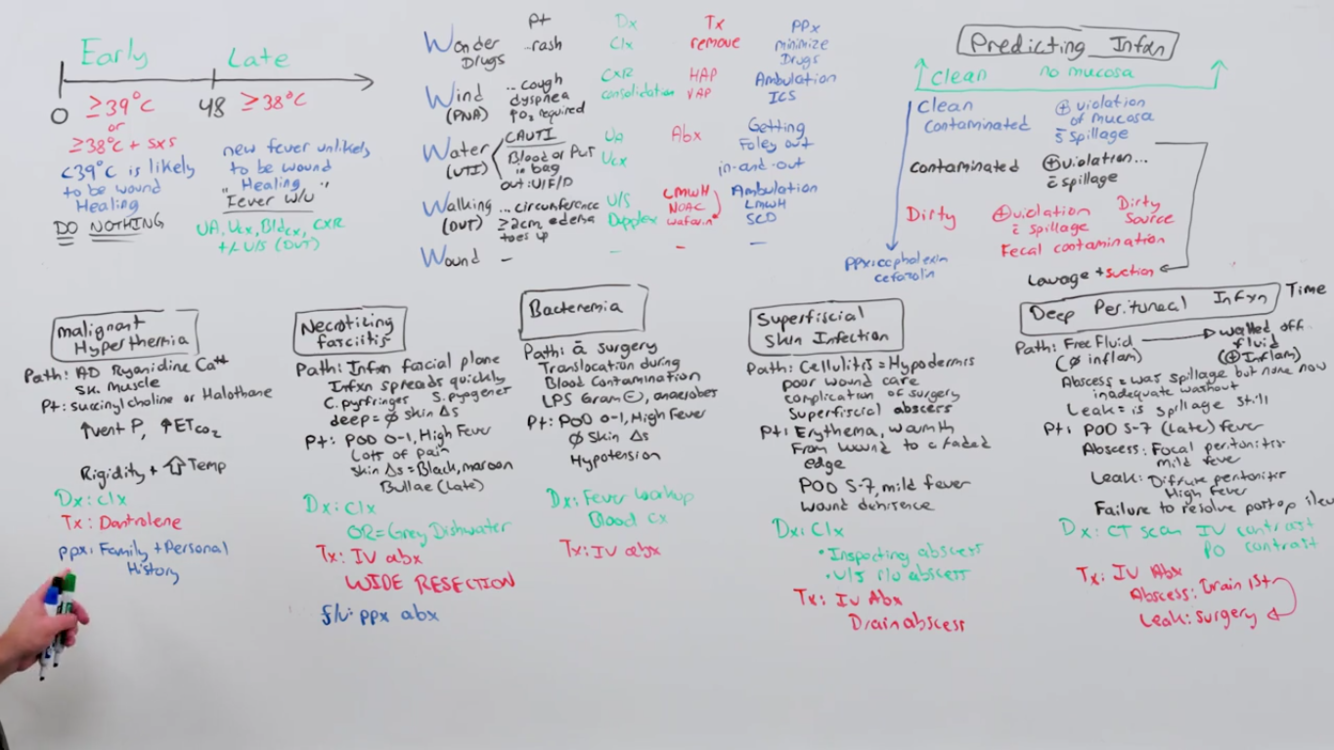 Early
Late
0
48
≥39°C
or
≥38°C + sxs
<39°C is likely
to be wound
Healing
DO NOTHING
≥38°C
new fever unlikely
to be wound
Healing
"Fever W/U"
UA, Ucx, Bldcx, CXR
+/- U/S (DVT)
Pt
Dx
Tx
PPx
Wonder
Drugs
..rash
Clx
remove
minimize
Drugs
Wind
(PNA)
... cough
dyspnea
↑O₂ required
CXR
consolidation
HAP
VAP
Ambulation
ICS
Water
(UTI)
CAUTI
Blood or Pus
in bag
out: U/F/D
UA
Ucx
Abx
Getting
Foley out
in-and-out
Walking
(DVT)
... circumference
≥2cm edema
toes up
U/S
Dupplex
LMWH
NOAC
Warfarin
Ambulation
LMWH
SCD
Wound
-
-
-
-
Predicting Infxn
Clean no mucosa
Clean
Contaminated
⊕ violation
of mucosa
s̄ spillage
Contaminated
⊕ violation...
c̄ spillage
Dirty
⊕ violation
c̄ spillage
Dirty
Source
Fecal contamination
Lavage + suction
PPx: cephalexin
cefazolin
malignant
Hyperthermia
Path: AD Ryanidine Ca⁺⁺
Sk. muscle
Pt: Succinylcholine or Halothane
↑vent P, ↑ETCO₂
Rigidity + ⇧ Temp
Dx: clx
Tx: Dantrolene
ppx: Family + Personal
History
Necrotizing
fasciitis
Path: Infxn fascial plane
Infxn spreads quickly
C. pyrfringes S. pyogenes
deep = ∅ skin Δs
Pt: POD 0-1, High Fever
Lots of pain
Skin Δs = Black, maroon
Bullae (late)
Dx: Clx
OR = Grey Dishwater
Tx: IV abx
WIDE RESECTION
f/u: ppx abx
Bacteremia
Path: ā surgery
Translocation during
Blood Contamination
LPS Gram ⊖, anaerobes
Pt: POD 0-1, High Fever
∅ Skin Δs
Hypotension
Dx: Fever workup
Blood cx
Tx: IV abx
Superfiscial
Skin Infection
Path: Cellulitis = Hypodermis
poor wound care
complication of surgery
Superfiscial abscess
Pt: Erythema, warmth
From wound to a faded
edge
POD 5-7, mild fever
wound dehisence
Dx: Clx
• Inspecting abscess
• U/S r/u abscess
Tx: IV Abx
Drain abscess
Deep Peritoneal Infxn
Time
Path: Free Fluid → walled off
fluid
(∅ inflam)
(⊕ Inflam)
Abscess = was spillage but none now
inadequate washout
Leak = is spillage still
Pt: POD 5-7 (late) fever
Abscess: Focal peritonitis
mild fever
Leak: Diffuse peritonitis
High Fever
Failure to resolve postop ileu
Dx: CT scan IV contrast
PO contrast
Tx: IV Abx
Abscess: Drain 1st
Leak: surgery